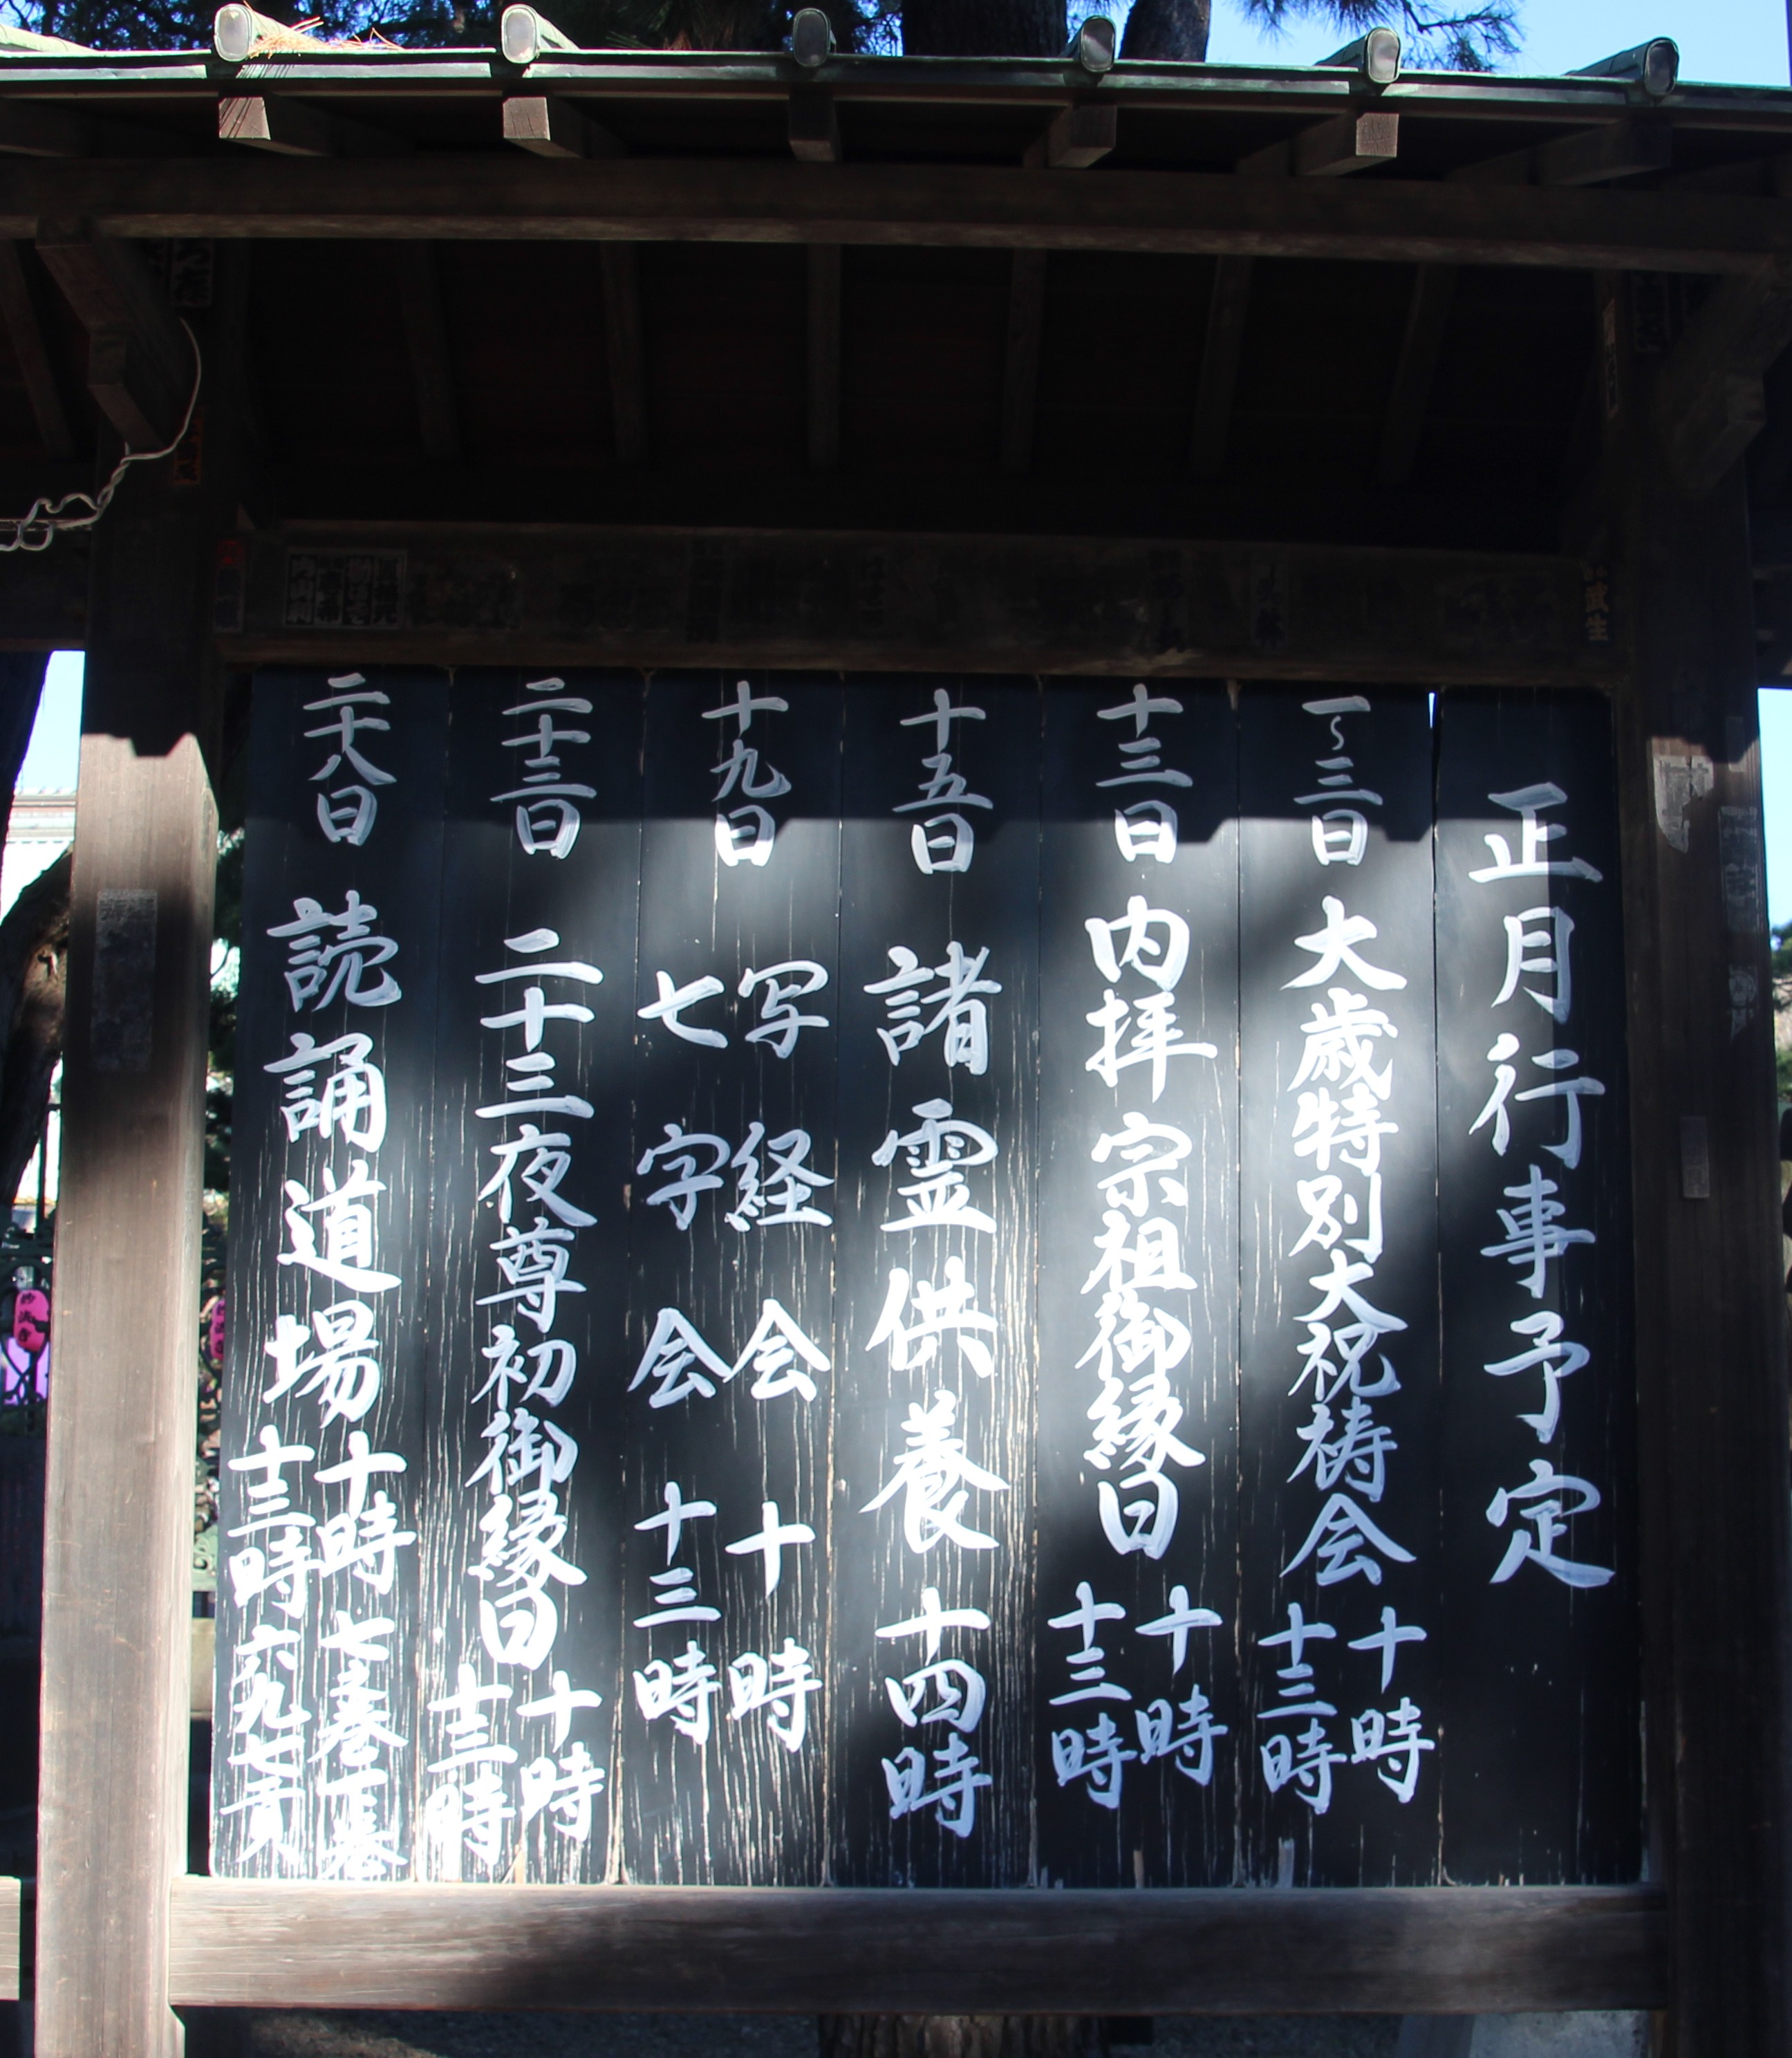 正月行事予定
一〜三日 大歳特別大祝祷会 十時
十三時
十三日 内拝 宗祖御縁日 十時
十三時
十五日 諸霊供養 十四時
十九日 写経会 十時
七字会 十三時
二十三日 二十三夜尊初御縁日 十時
十三時
二十八日 読誦道場 十時
十三時